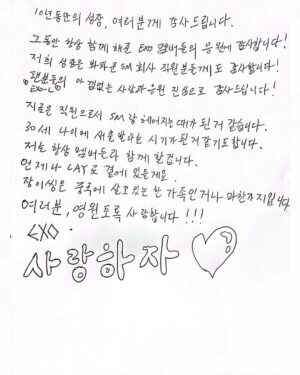 10년동안의 성장, 여러분께 감사드립니다.
그동안 항상 함께 해준 EXO 멤버들의 응원에 감사합니다!
저희 성장을 봐와준 SM회사 직원분들께도 감사합니다!
팬분들의 아낌없는 사랑과 응원 진심으로 감사드립니다!
EXO-L
지금은 직원으로서 SM랑 헤어지는 때가 된거 같습니다.
30세 나이에 새로 발하는 시기가 된거 같기도 합니다.
저는 항상 멤버들과 함께 할겁니다.
언제나 LAY로 곁에 있을게요.
장이씽은 중국에 살고 있는 한 가족인거나 마찬가지입니다.
여러분, 영원토록 사랑합니다!!!
EXO
사랑하자